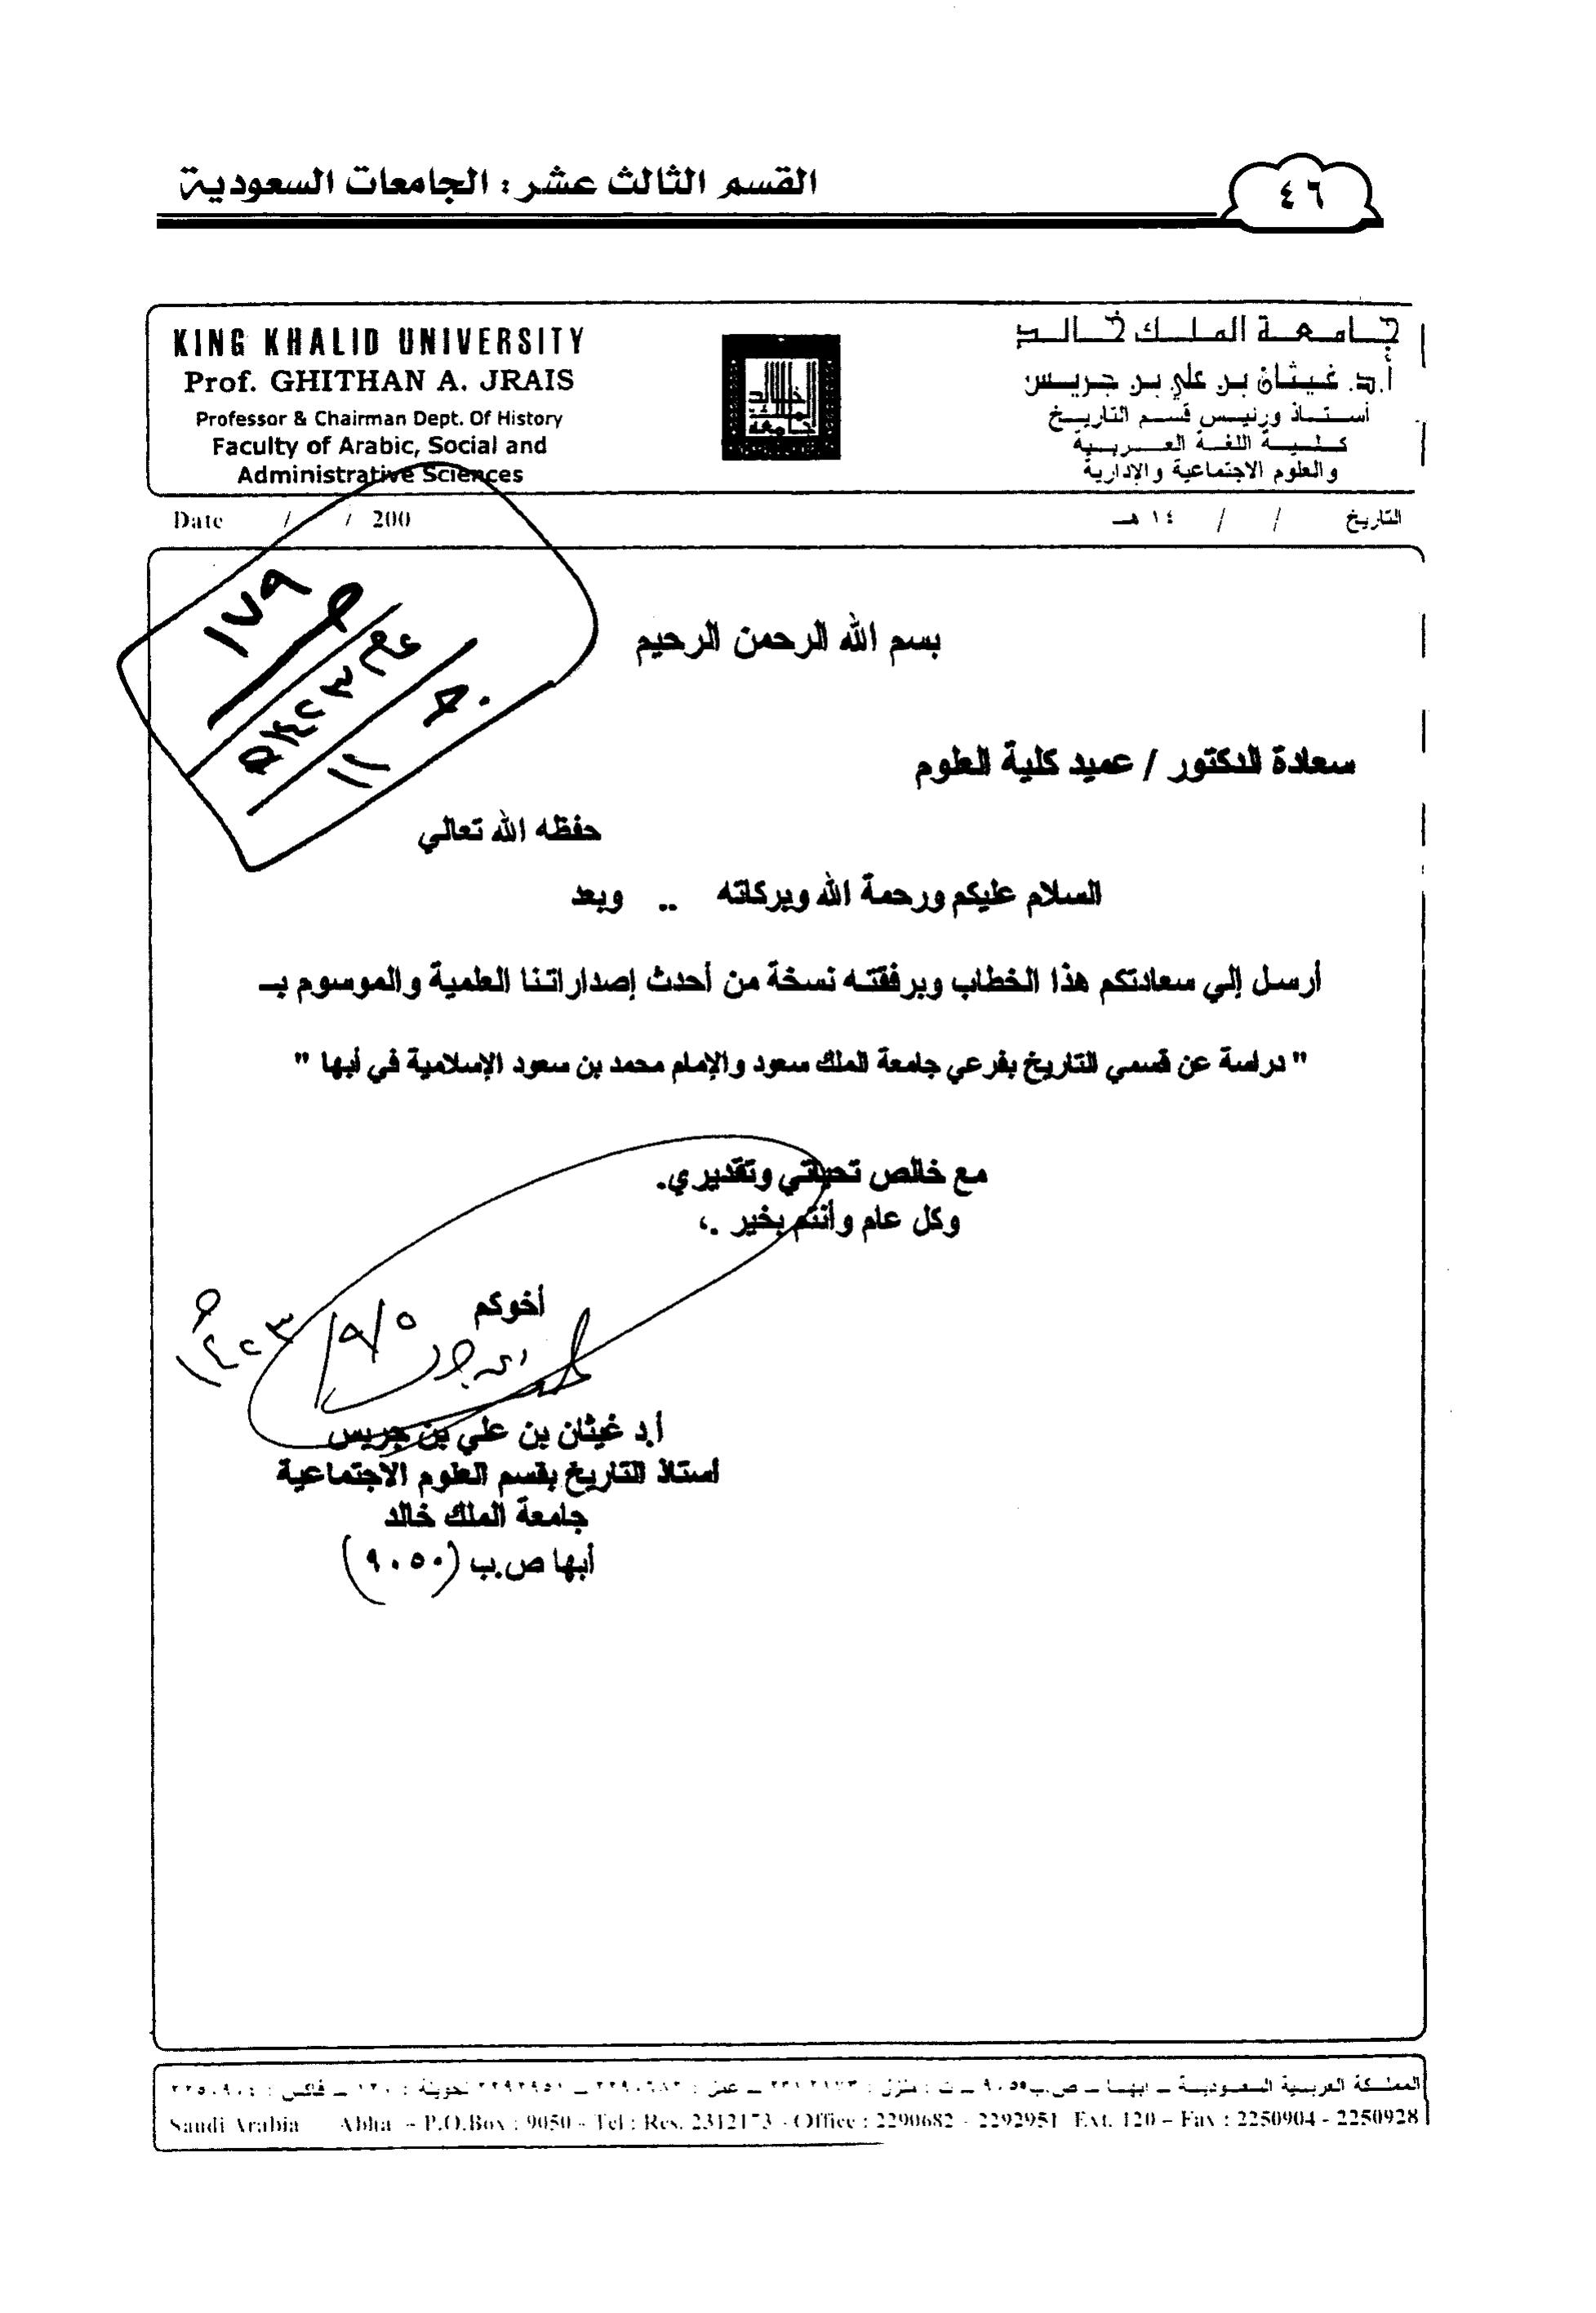 القسم الثالث عشر : الجامعات السعودية
٤٦
KING KHALID UNIVERSITY
Prof. GHITHAN A. JRAIS
Professor & Chairman Dept. Of History
Faculty of Arabic, Social and
Administrative Sciences
جامعة الملك خالد
أ.د. غيثان بن علي بن جريس
أستاذ ورئيس قسم التاريخ
كلية اللغة العربية
والعلوم الاجتماعية والإدارية
Date / / 200
التاريخ / / ١٤ هـ
١٧٩
بسم الله الرحمن الرحيم
سعادة الدكتور / عميد كلية العلوم
حفظه الله تعالي
السلام عليكم ورحمة الله وبركاته .. وبعد
أرسل إلي سعادتكم هذا الخطاب وبرفقته نسخة من أحدث إصداراتنا العلمية والموسوم بـ
" دراسة عن قسمي التاريخ بفرعي جامعة الملك سعود والإمام محمد بن سعود الإسلامية في أبها "
مع خالص تحياتي وتقديري.
وكل عام وأنتم بخير .،
أخوكم
٥/٩/١٤٢٣هـ
أ.د غيثان بن علي بن جريس
أستاذ التاريخ بقسم العلوم الاجتماعية
جامعة الملك خالد
أبها ص.ب (٩٠٥٠)
المملكة العربية السعودية – ابها – ص.ب ٩٠٥٠ – ت : منزل : ٢٣١٢١٧٣ – عمل : ٢٢٩٠٦٨٢ – ٢٢٩٢٩٥١ تحويلة : ١٢٠ – فاكس : ٢٢٥٠٩٠٤
Saudi Arabia Abha – P.O.Box : 9050 - Tel : Res. 2312173 - Office : 2290682 - 2292951 Ext. 120 – Fax : 2250904 - 2250928